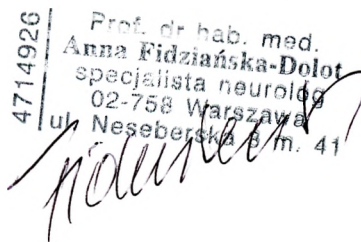 4714926
Prof. dr hab. med.
Anna Fidziańska-Dolot
specjalista neurolog
02-758 Warszawa
ul. Neseberska 3 m. 41